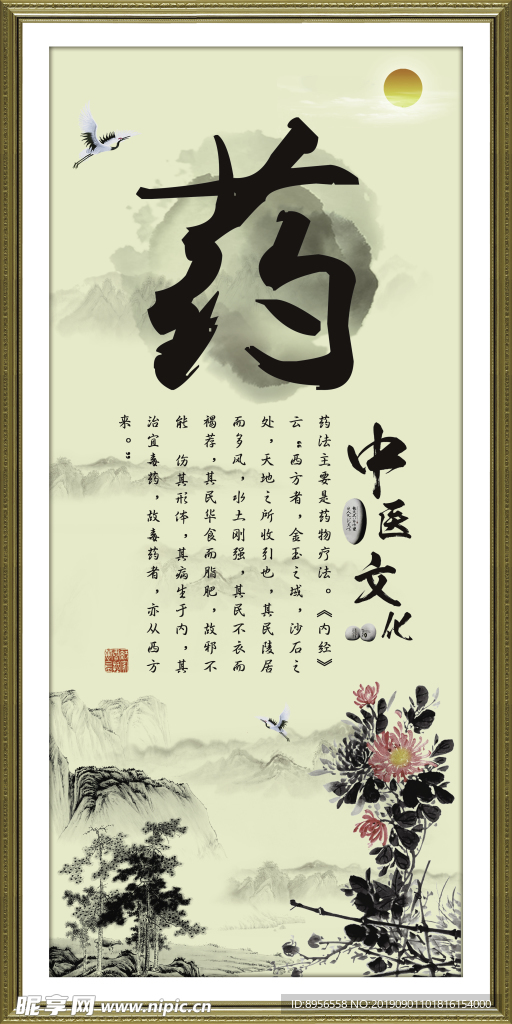 药
中医文化
药法主要是药物疗法。《内经》
云：“西方者，金玉之域，沙石之
处，天地之所收引也，其民陵居
而多风，水土刚强，其民不衣而
褐荐，其民华食而脂肥，故邪不
能 伤其形体，其病生于内，其
治宜毒药，故毒药者，亦从西方
来。”
昵享网 www.nipic.cn
ID:8956558 NO:20190901101816154000